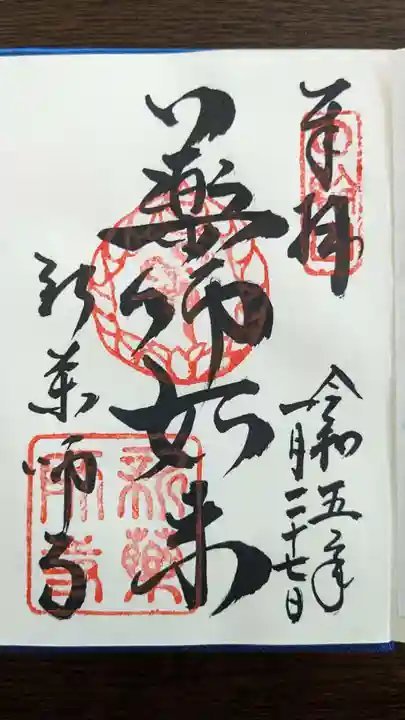 奉拝
令和五年
二月二十七日
薬師如来
新薬師寺
新薬
師寺